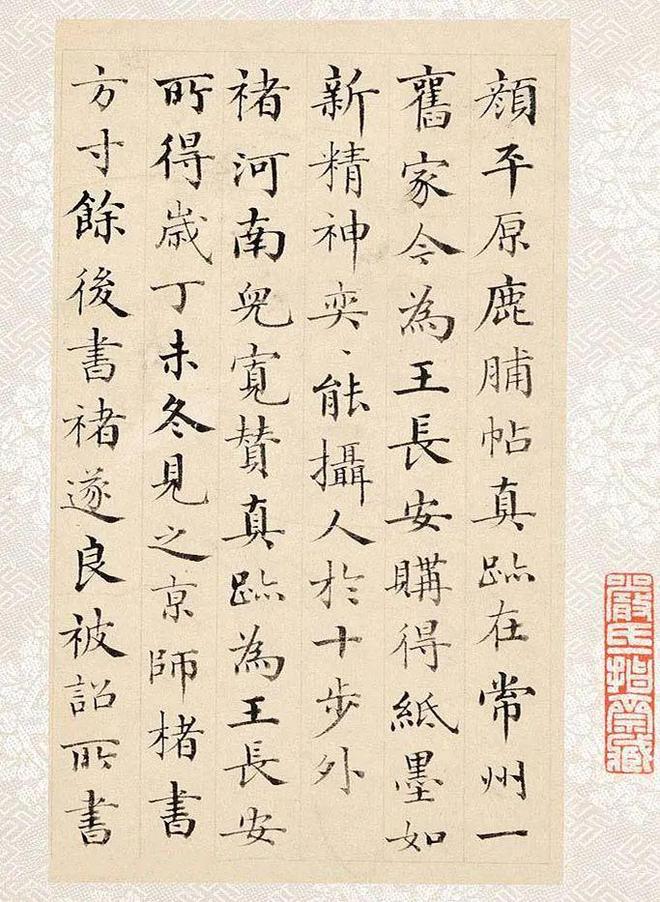 顔平原鹿脯帖真跡在常州一
舊家今為王長安購得紙墨如
新精神奕、能攝人於十步外
褚河南兒寬贊真跡為王長安
所得歲丁未冬見之京師楮書
方寸餘後書褚遂良被詔所書
嚴氏指帚藏